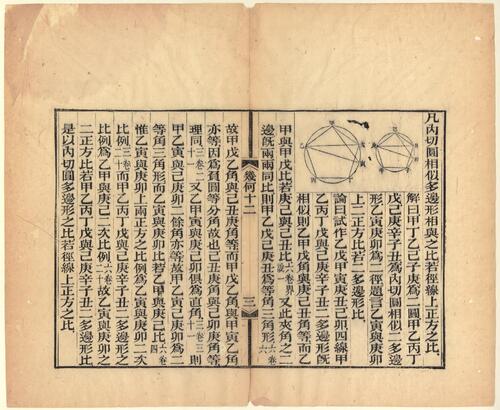 凡內切圓相似多邊形相與之比若徑線上正方之比
解曰甲丁乙己子庚爲二圓甲乙丙丁
戊己庚辛子丑爲內切圓相似二多邊
形乙寅與庚卯爲二徑題言乙寅與庚卯
上二正方比若二多邊形比
論曰試作乙戊甲寅庚丑己卯四線甲
乙丙丁戊與己庚辛子丑二多邊形旣
相似則乙甲戊角與庚己丑角等而乙
甲與甲戊比若庚己與己丑比六卷界說一又此夾角之二
邊旣兩兩同比則甲乙戊己庚丑爲等角三角形六卷六
幾何十二
三
故甲戊乙角與己丑庚角等而甲戊乙角與甲寅乙角
亦等因爲負圓等分角故也己丑庚與己卯庚角等
理同三卷二十一又乙甲寅與庚己卯俱爲直角三卷三十一則
甲乙寅與己庚卯二餘角亦等故甲乙寅己庚卯爲二
等角三角形而乙寅與庚卯比若乙甲與庚己比六卷四
惟乙寅與庚卯上兩正方之比例爲乙寅與庚卯二次
比例六卷二十而甲乙丙丁戊與己庚辛子丑二多邊形之
比例爲乙甲與庚己二次比例六卷二十故乙寅與庚卯之
二正方比若甲乙丙丁戊與己庚辛子丑二多邊形比
是以內切圓多邊形之比若徑線上正方之比